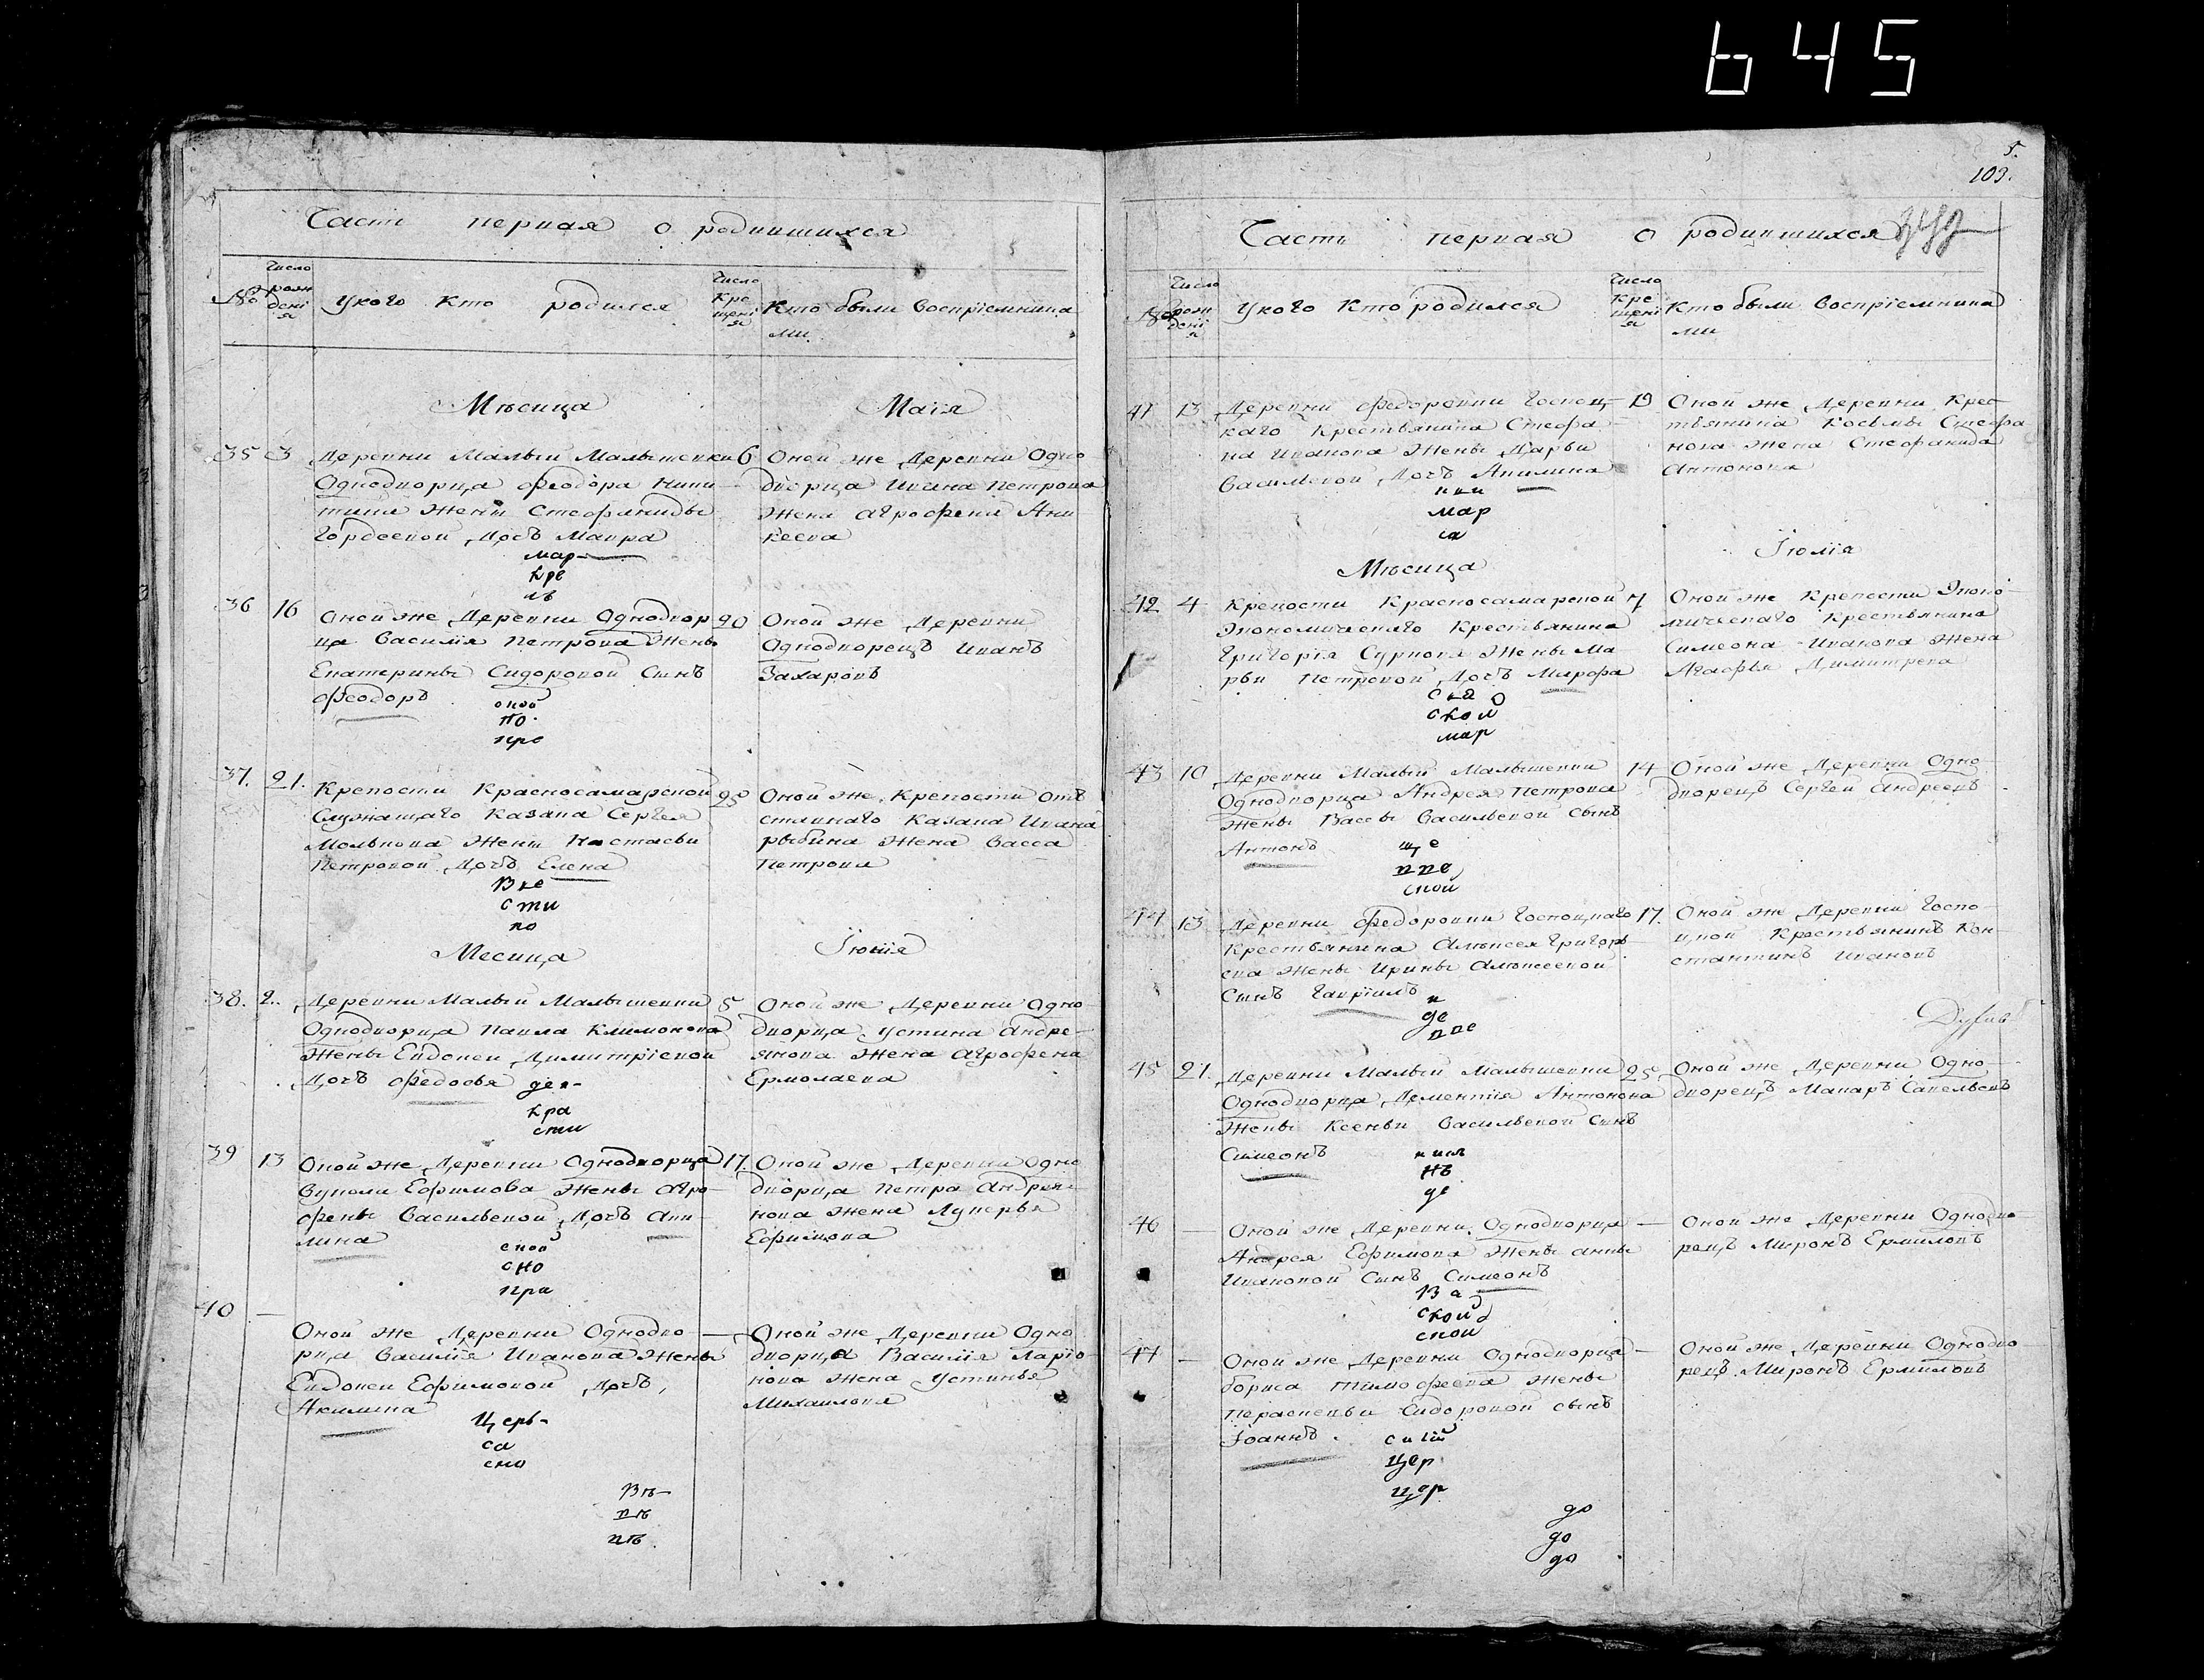 645
Часть первая о родившихся
№
Число рожденія
У кого кто родился
Число крещенія
Кто были восприемника
ми
Мѣсица Маія
35 3 Деревни Малый Малышевки 6
Однодворца Феодора Ники
тина жены Стефаниды
Гордеевой Дочь Мавра
Оной же Деревни Одно
дворца Ивана Петрова
жена Агрофена Аки
кеева
мар
кре
36 16 Оной же Деревни Однодвор 20
ца Василія Петрова жены
Екатерины Сидоровой Сынъ
Феодоръ
Оной же Деревни
Однодворецъ Иванъ
Захаровъ
по
пре
37. 21. Крепости Красносамарской 25
Служащаго Казака Сергея
жены Настасьи
Петровой Дочь Елена
Оной же Крепости Отъ
ставнаго Казака Ивана
рыбина жена Васса
Петрова
сти
по
Месица Іюнія
38. 2. Деревни Малый Малышевки 5
Однодворца Павла Климонова
жены Евдокеи Димитріевой
Дочь Федосья
Оной же Деревни Одно
дворца Устина Андре
янова жена Агрофена
Ермолаева
дея
кра
сти
39 13 Оной же Деревни Однодворца 17.
Вукола Ефимова жены Агро
фены Васильевой Дочь Аки
лина
Оной же Деревни Одно
дворца Петра Андрея
нова жена Лукерья
Ефимова
ской
сно
пра
40 — Оной же Деревни Однодво —
рца Василія Иванова жены
Евдокеи Ефимовой Дочь
Акилина
Оной же Деревни Одно
дворца Василія Ларіо
нова жена Устинья
Михаилова
Церь
са
5.
103.
Часть первая о родившихся
№
Число рожденія
У кого кто родился
Число крещенія
Кто были восприемника
ми
41 13 Деревни Федоровки Господ 19
каго Крестьянина Стефа
на Иванова жены Дарьи
Васильевой Дочь Акилина
Оной же Деревни Крес
тьянина Косьмы Стефа
нова жена Стефанида
Антонова
мар
са
Мѣсица Іюлія
42 4 Крепости Красносамарской 7
Экономическаго Крестьянина
Григорія Суркова жены Ма
рьи Петровой Дочь Мирофа
Оной же Крепости Эконо
мическаго Крестьянина
Симеона Иванова жена
Агафья Димитрева
ской
мар
43 10 Деревни Малый Малышевки 14
Однодворца Андрея Петрова
жены Вассы Васильевой сынъ
Антонъ
Оной же Деревни Одно
дворецъ Сергей Андреевъ
ще
ской
44 13 Деревни Федоровки Господкаго 17.
Крестьянина Алексея Григорь
ева жены Ирины Алексеевой
Сынъ Гавріилъ
Оной же Деревни Госпо
цкой Крестьянинъ Кон
стантинъ Ивановъ
де
45 21. Деревни Малый Малышевки 25
Однодворца Дементія Антонова
жены Ксеньи Васильевой Сынъ
Симеонъ
Оной же Деревни Одно
дворецъ Макаръ Савельевъ
нъ
де
46 — Оной же Деревни Однодворца —
Андрея Ефимова жены анны
Ивановой Сынъ Симеонъ
Оной же Деревни Однодво
рецъ Миронъ Ермиловъ
Ва
ской
ской
47 — Оной же Деревни Однодворца —
бориса тимофеева жены
Перасковьи Сидоровой сынъ
Іоаннъ.
Оной же Деревни Однодво
рецъ Миронъ Ермиловъ
цер
цер
до
до
до